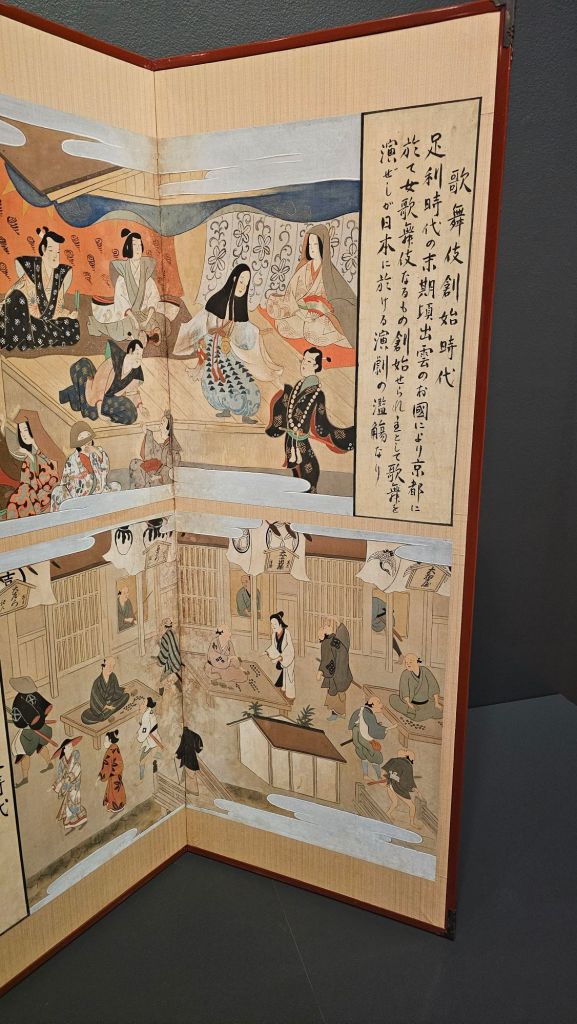 歌舞伎創始時代
足利時代の末期頃出雲のお國により京都に
於て女歌舞伎なるもの創始せられ主として歌舞を
演ぜしが日本に於ける演劇の濫觴なり
吉
時代